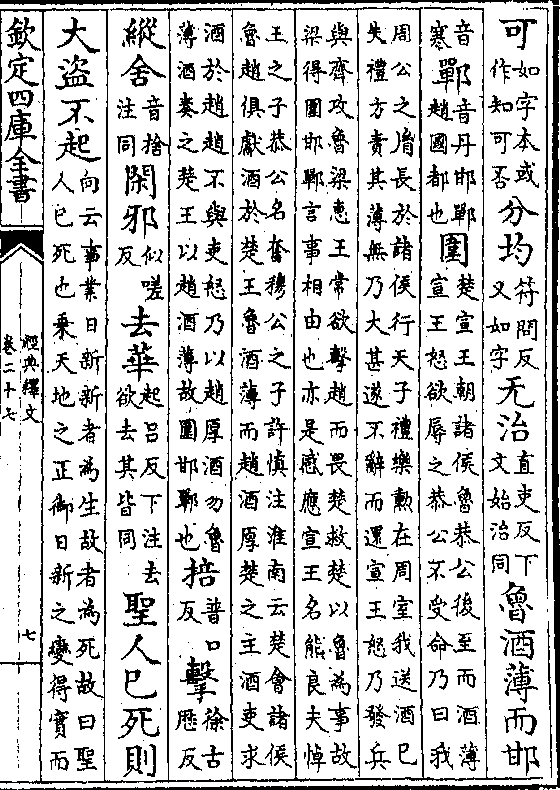 可如字本或作知可否分均符問反又如字无治直吏反下文始治同魯酒薄而邯
音寒鄲音丹邯鄲趙國都也圍楚宣王朝諸侯魯恭公後至而酒薄宣王怒欲辱之恭公不受命乃曰我
周公之胤長於諸侯行天子禮樂勲在周室我送酒已失禮方責其薄無乃大甚遂不辭而還宣王怒乃發兵
與齊攻魯梁惠王常欲擊趙而畏楚救楚以魯為事故梁得圍邯鄲言事相由也亦是感應宣王名熊良夫悼
王之子恭公名奮穆公之子許慎注淮南云楚會諸侯魯趙俱獻酒於楚王魯酒薄而趙酒厚楚之主酒吏求
酒於趙趙不與吏怒乃以趙厚酒勿魯薄酒奏之楚王以趙酒薄故圍邯鄲也掊普口反擊徐古歷反
縱舍音捨注同閑邪似嗟反去華起吕反下注去欲去其皆同聖人已死則
大盜不起向云事業日新新者為生故者為死故曰聖人已死也乗天地之正御日新之變得實而
欽定四庫全書
經典釋文
卷二十七
七